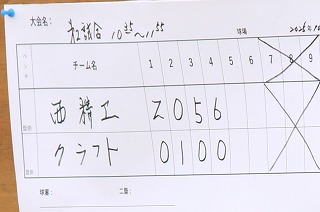 大会名: 紅試合 10:35~11:55
球場 2025.10
ベンチ チーム名 1 2 3 4 5 6 7 8 9
西精工 2 0 5 6
クラフト 0 1 0 0
球審: 二塁: